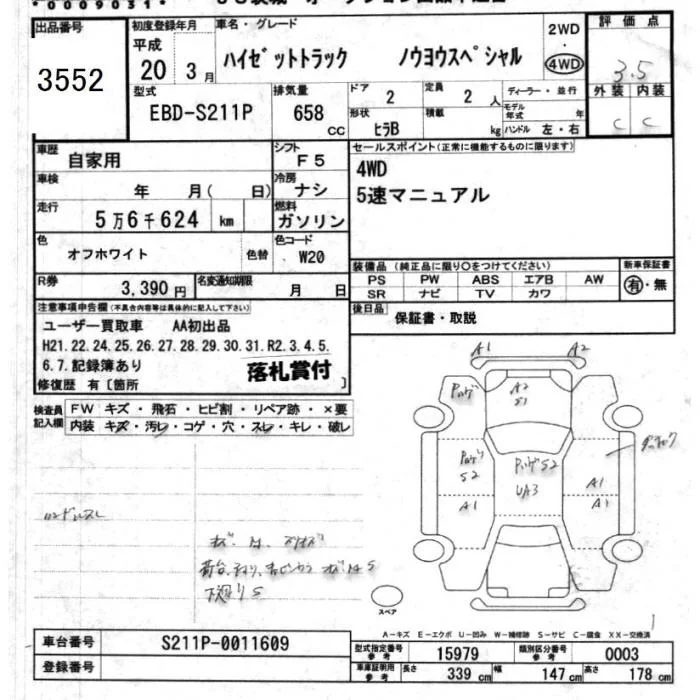 *0009031*
出品番号 初度登録年月 車名・グレード 2WD 評価点
平成
3552 20 3月 ハイゼットトラック ノウヨウスペシャル ・4WD 3.5
型式 排気量 ドア 2 定員 2人 ディーラー・並行 外装 内装
EBD-S211P 658 CC 形状 ヒラB 積載 kg モデル年式 年 ハンドル 左・右 C C
車歴 自家用 シフト F5 セールスポイント(正常に機能するものに限ります)
車検 年 月( 日) 冷房 ナシ 4WD
走行 5万6千624 km 燃料 ガソリン 5速マニュアル
色 オフホワイト 色替 色コード W20
装備品(純正品に限り○をつけてください) 新車保証書
R券 3,390円 名変通知期限 月 日 PS PW ABS エアB AW 有・無
SR ナビ TV カワ
注意事項申告欄(不具合内容等は具体的に記入して下さい) 後日品 保証書・取説
ユーザー買取車 AA初出品
H21.22.24.25.26.27.28.29.30.31.R2.3.4.5.
6.7.記録簿あり 落札賞付
修復歴 有〔箇所 〕
検査員記入欄 FW キズ・飛石・ヒビ割・リペア跡・×要
内装 キズ・汚レ・コゲ・穴・スレ・キレ・破レ
A1 A2
A2
S2
S2
UA3
A1 A1
A1
下廻りS
スペア
A-キズ E-エクボ U-凹み W-補修跡 S-サビ C-腐食 XX-交換済
車台番号 S211P-0011609 型式指定番号 参考 15979 類別区分番号 参考 0003
登録番号 車庫証明用 参考 長さ 339 cm 幅 147 cm 高さ 178 cm